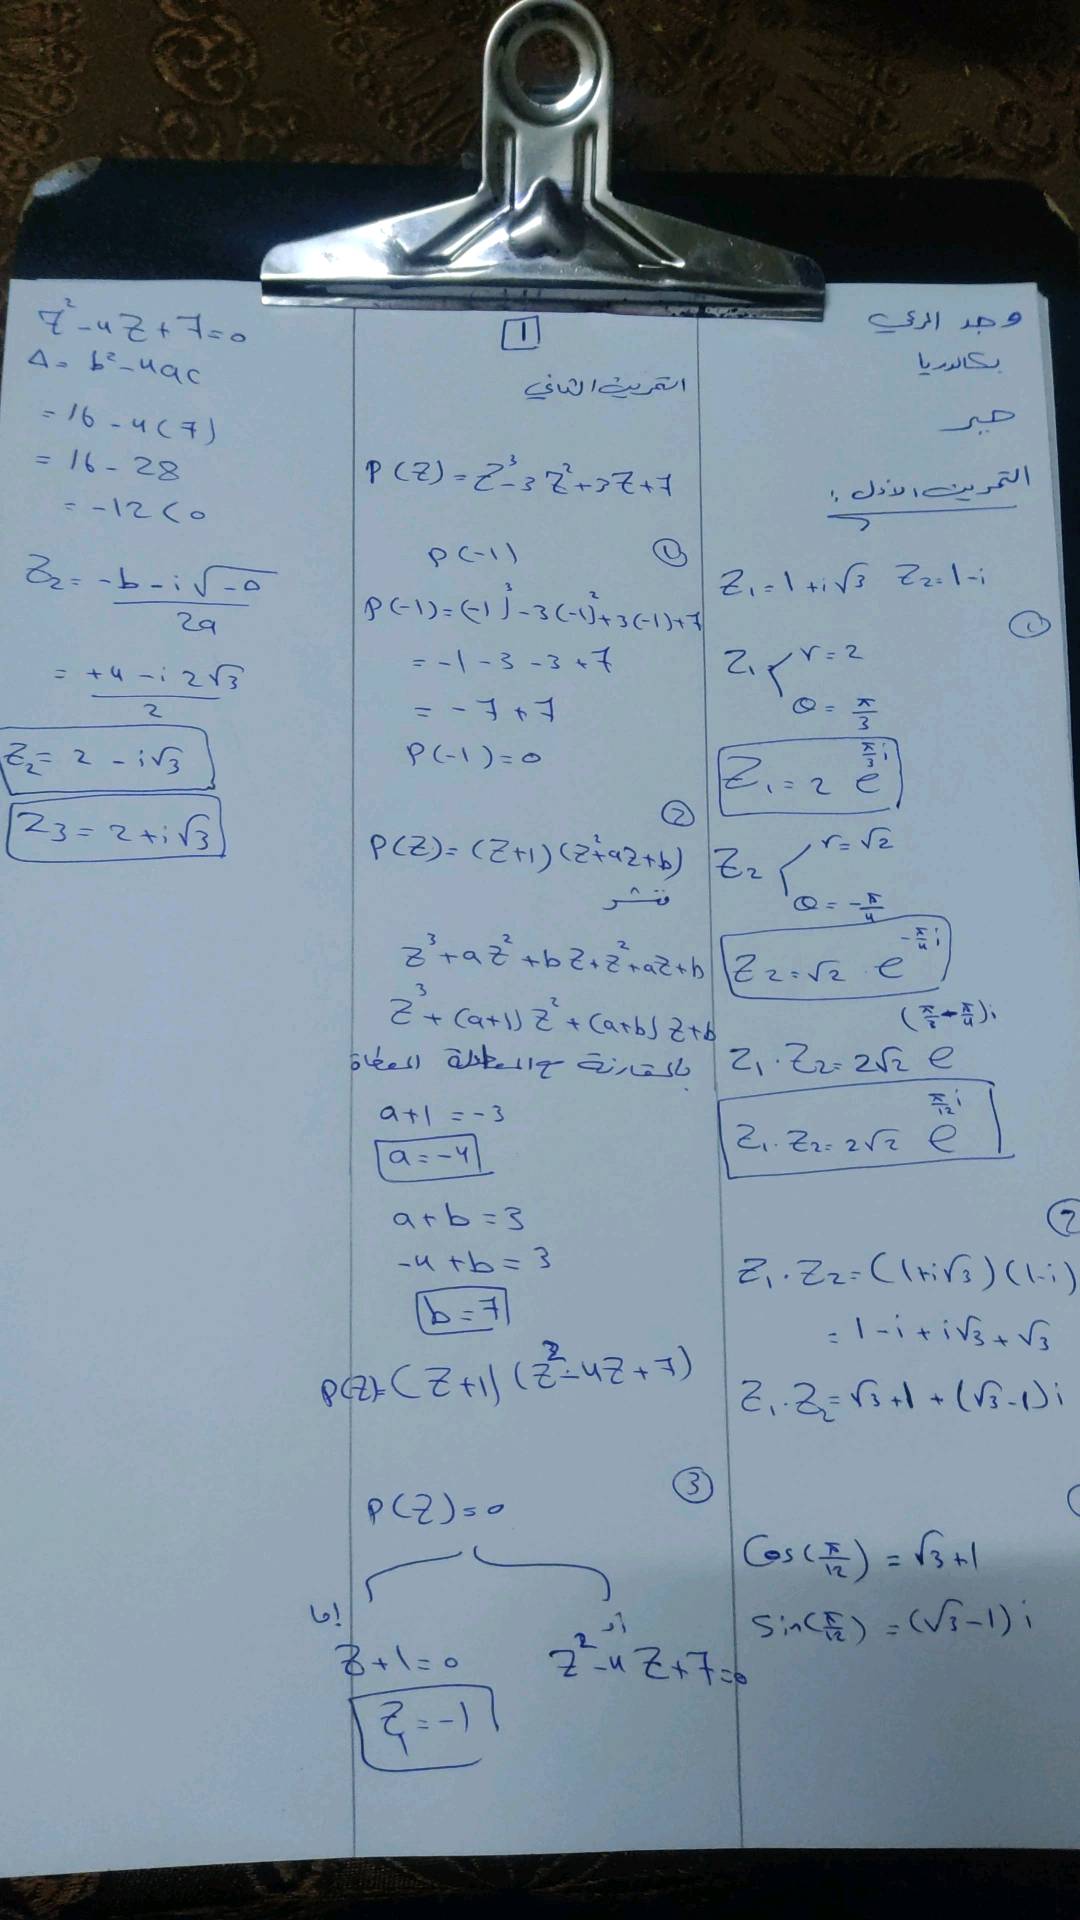 وجد الرعي
بكالوريا
جبر
التمرين الأول:
Z₁ = 1 + i√3   Z₂ = 1 - i
①
Z₁ < r = 2
θ = π/3
Z₁ = 2 e^(π/3 i)
Z₂ < r = √2
θ = -π/4
Z₂ = √2 · e^(-π/4 i)
Z₁ · Z₂ = 2√2 e^((π/3 - π/4) i)
Z₁ · Z₂ = 2√2 e^(π/12 i)
②
Z₁ · Z₂ = (1 + i√3)(1 - i)
= 1 - i + i√3 + √3
Z₁ · Z₂ = √3 + 1 + (√3 - 1) i
Cos(π/12) = √3 + 1
Sin(π/12) = (√3 - 1) i
1
التمرين الثاني
P(Z) = Z³ - 3Z² + 3Z + 7
①
P(-1)
P(-1) = (-1)³ - 3(-1)² + 3(-1) + 7
= -1 - 3 - 3 + 7
= -7 + 7
P(-1) = 0
②
P(Z) = (Z+1)(Z² + aZ + b)
ننشر
Z³ + aZ² + bZ + Z² + aZ + b
Z³ + (a+1) Z² + (a+b) Z + b
بالمقارنة مع المعادلة المعطاة
a + 1 = -3
a = -4
a + b = 3
-4 + b = 3
b = 7
P(Z) = (Z+1)(Z² - 4Z + 7)
③
P(Z) = 0
إما
Z + 1 = 0
Z₁ = -1
أو
Z² - 4Z + 7 = 0
Z² - 4Z + 7 = 0
Δ = b² - 4ac
= 16 - 4(7)
= 16 - 28
= -12 < 0
Z₂ = (-b - i√-Δ)/2a
= (+4 - i 2√3)/2
Z₂ = 2 - i√3
Z₃ = 2 + i√3